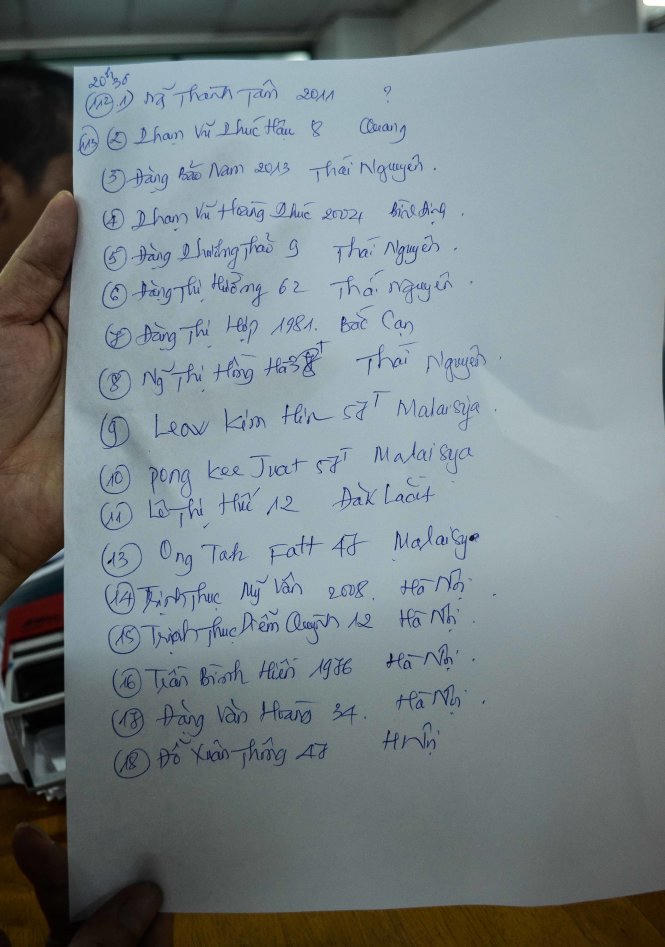 20h36
112. 1) Ng Thành Tâm 2011 ?
113 2 Phạm Vũ Phúc Hậu 8 Quang
3 Đặng Bảo Nam 2013 Thái Nguyên.
4 Phạm Vũ Hoàng Phúc 2002 Bình Định.
5 Đặng Phương Thảo 9 Thái Nguyên.
6 Đặng Thị Hường 62 Thái Nguyên.
7 Đặng Thị Hợp 1981. Bắc Cạn
8 Ng Thị Hồng Hà Thái Nguyên.
9 Leow Kim Hin 57T Malaisya.
10 Pong Kee Juat 57T Malaisya
11 Lê Thị Huế 12 Đăk
13 Ong Tah Fatt 47 Malaisya
14 Trịnh Thục Mỹ Vân 2008. Hà Nội.
15 Trịnh Thục Diễm Quỳnh 12 Hà Nội.
16 Trần Bình Hiền 1976 Hà Nội.
17 Đặng Văn Hoàng 34. Hà Nội.
18 Đỗ Xuân Thông 47 HNội